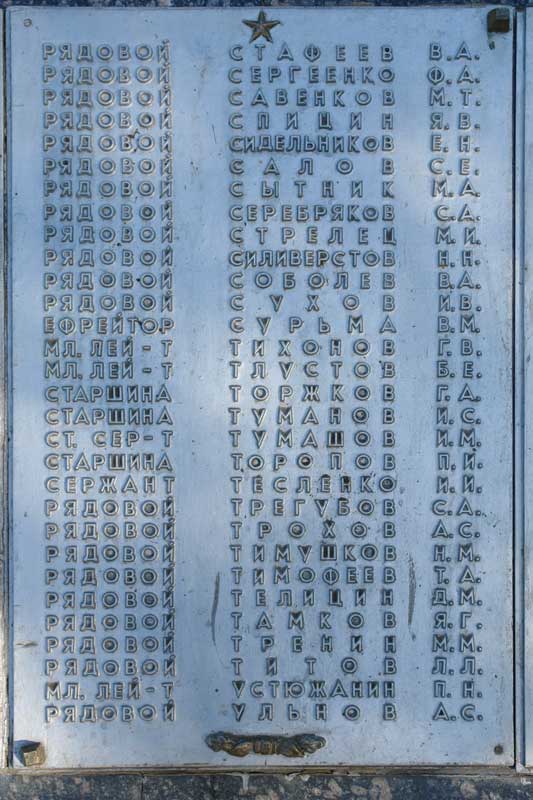 РЯДОВОЙ СТАФЕЕВ В.А.
РЯДОВОЙ СЕРГЕЕНКО Ф.А.
РЯДОВОЙ САВЕНКОВ М.Т.
РЯДОВОЙ СПИЦИН Я.В.
РЯДОВОЙ СИДЕЛЬНИКОВ Е.Н.
РЯДОВОЙ САЛОВ С.Е.
РЯДОВОЙ СЫТНИК М.А.
РЯДОВОЙ СЕРЕБРЯКОВ С.А.
РЯДОВОЙ СТРЕЛЕЦ М.И.
РЯДОВОЙ СИЛИВЕРСТОВ Н.Н.
РЯДОВОЙ СОБОЛЕВ В.А.
РЯДОВОЙ СУХОВ И.В.
ЕФРЕЙТОР СУРЬМА В.М.
МЛ. ЛЕЙ-Т ТИХОНОВ Г.В.
МЛ. ЛЕЙ-Т ТЛУСТОВ Б.Е.
СТАРШИНА ТОРЖКОВ Г.А.
СТАРШИНА ТУМАНОВ И.С.
СТ. СЕР-Т ТУМАШОВ И.М.
СТАРШИНА ТОРОПОВ П.И.
СЕРЖАНТ ТЕСЛЕНКО И.И.
РЯДОВОЙ ТРЕГУБОВ С.А.
РЯДОВОЙ ТРОХОВ А.С.
РЯДОВОЙ ТИМУШКОВ Н.М.
РЯДОВОЙ ТИМОФЕЕВ Т.А.
РЯДОВОЙ ТЕЛИЦИН Д.М.
РЯДОВОЙ ТАМКОВ Я.Г.
РЯДОВОЙ ТРЕНИН М.М.
РЯДОВОЙ ТИТОВ Л.Л.
МЛ. ЛЕЙ-Т УСТЮЖАНИН П.Н.
РЯДОВОЙ УЛЬНОВ А.С.